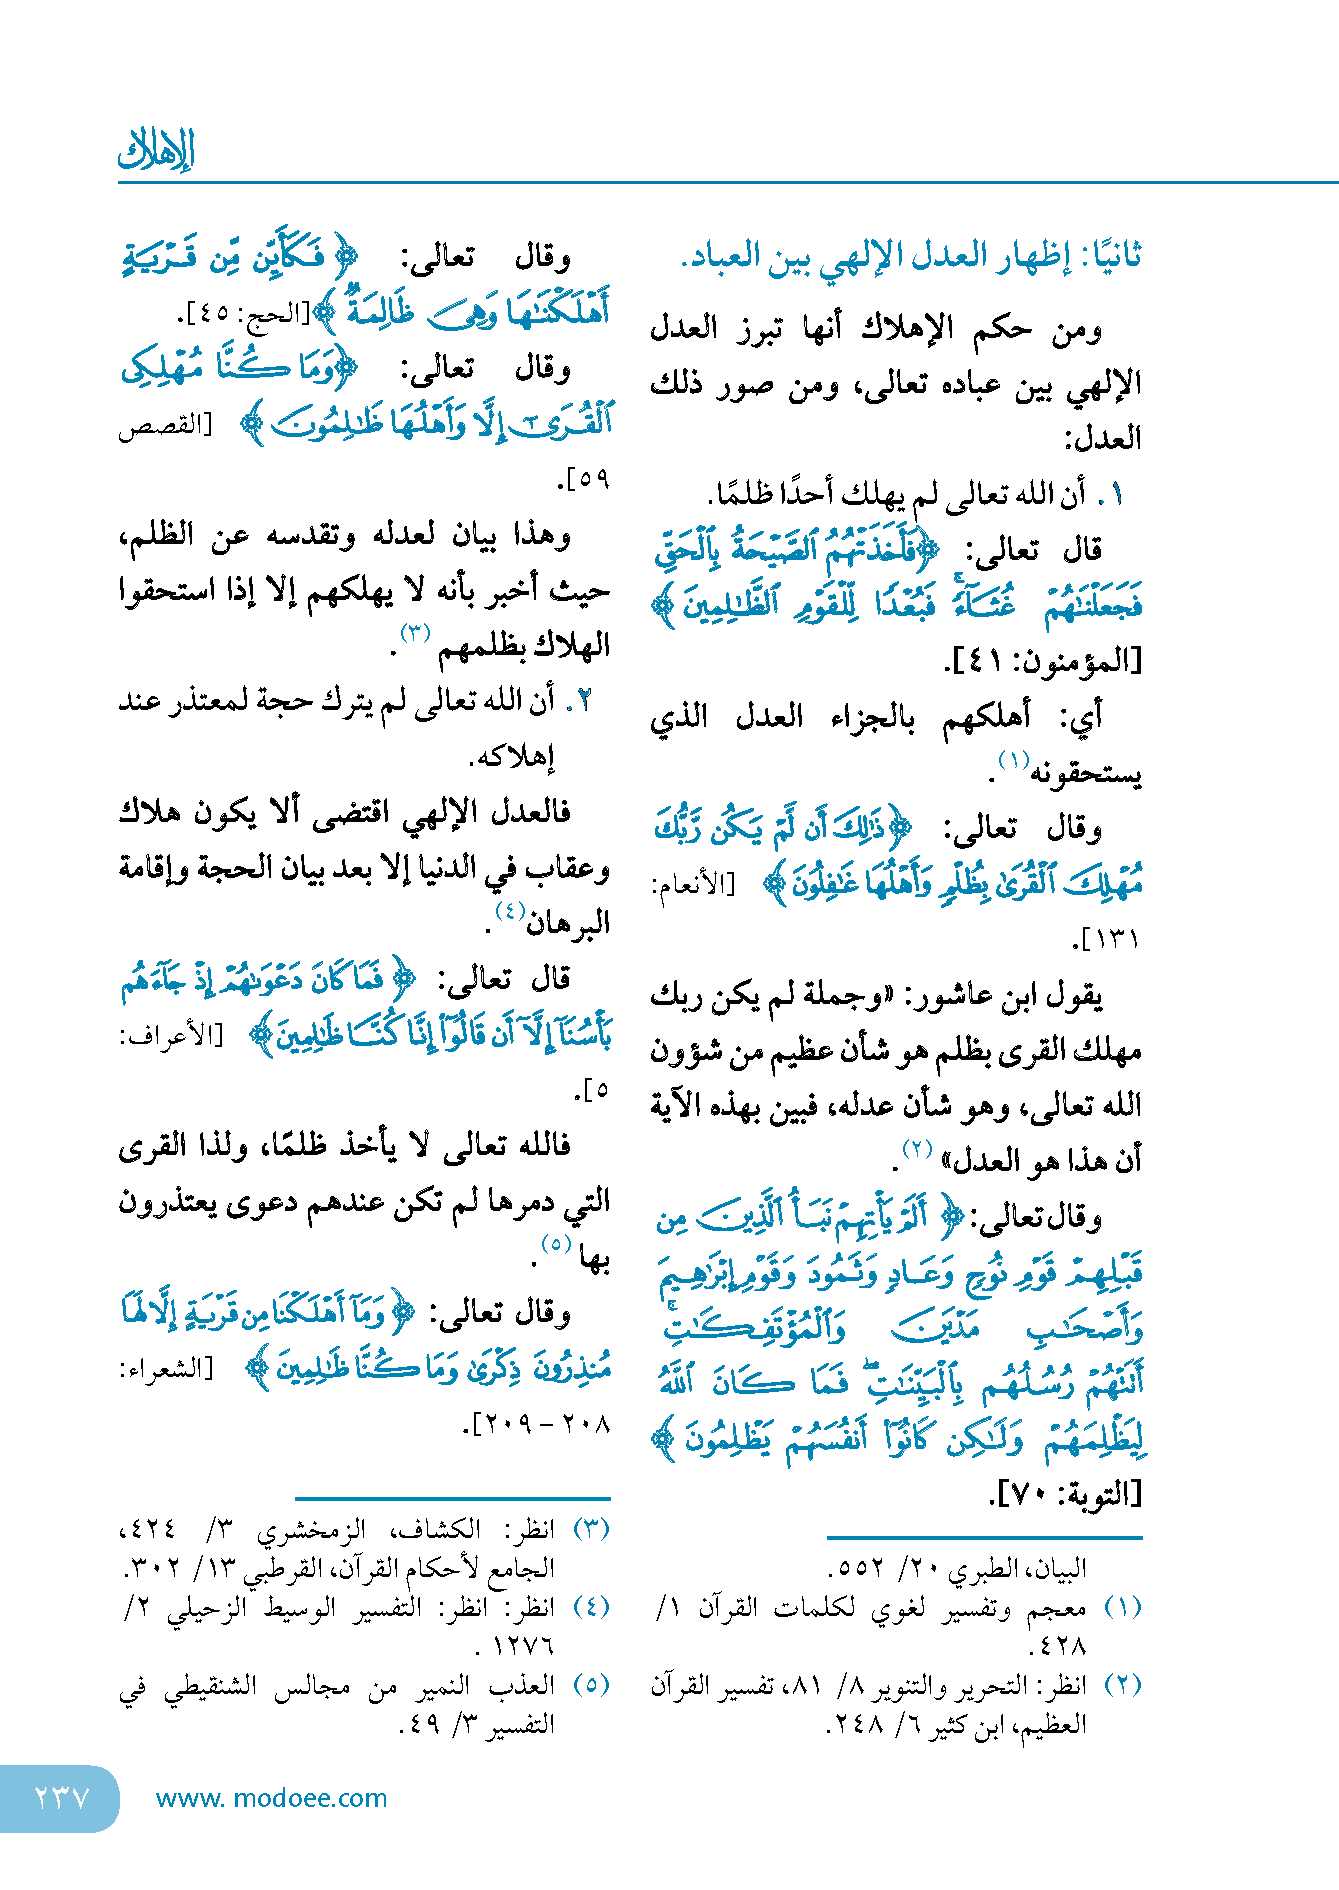 الإهلاك
ثانيًا: إظهار العدل الإلهي بين العباد.
ومن حكم الإهلاك أنها تبرز العدل
الإلهي بين عباده تعالى، ومن صور ذلك
العدل:
١. أن الله تعالى لم يهلك أحدًا ظلمًا.
قال تعالى: ﴿فَأَخَذَتْهُمُ الصَّيْحَةُ بِالْحَقِّ
فَجَعَلْنَاهُمْ غُثَاءً ۚ فَبُعْدًا لِّلْقَوْمِ الظَّالِمِينَ ﴾
[المؤمنون: ٤١].
أي: أهلكهم بالجزاء العدل الذي
يستحقونه(١).
وقال تعالى: ﴿ ذَٰلِكَ أَن لَّمْ يَكُن رَّبُّكَ
مُهْلِكَ الْقُرَىٰ بِظُلْمٍ وَأَهْلُهَا غَافِلُونَ ﴾ [الأنعام:
١٣١].
يقول ابن عاشور: «وجملة لم يكن ربك
مهلك القرى بظلم هو شأن عظيم من شؤون
الله تعالى، وهو شأن عدله، فبين بهذه الآية
أن هذا هو العدل» (٢).
وقال تعالى: ﴿ أَلَمْ يَأْتِهِمْ نَبَأُ الَّذِينَ مِن
قَبْلِهِمْ قَوْمِ نُوحٍ وَعَادٍ وَثَمُودَ وَقَوْمِ إِبْرَاهِيمَ
وَأَصْحَابِ مَدْيَنَ وَالْمُؤْتَفِكَاتِ ۚ
أَتَتْهُمْ رُسُلُهُم بِالْبَيِّنَاتِ ۖ فَمَا كَانَ اللَّهُ
لِيَظْلِمَهُمْ وَلَٰكِن كَانُوا أَنفُسَهُمْ يَظْلِمُونَ ﴾
[التوبة: ٧٠].
البيان، الطبري ٢٠/ ٥٥٢.
(١) معجم وتفسير لغوي لكلمات القرآن ١/
٤٢٨.
(٢) انظر: التحرير والتنوير ٨/ ٨١، تفسير القرآن
العظيم، ابن كثير ٦/ ٢٤٨.
وقال تعالى: ﴿ فَكَأَيِّن مِّن قَرْيَةٍ
أَهْلَكْنَاهَا وَهِيَ ظَالِمَةٌ ﴾[الحج: ٤٥].
وقال تعالى: ﴿وَمَا كُنَّا مُهْلِكِي
الْقُرَىٰ إِلَّا وَأَهْلُهَا ظَالِمُونَ ﴾ [القصص
٥٩].
وهذا بيان لعدله وتقدسه عن الظلم،
حيث أخبر بأنه لا يهلكهم إلا إذا استحقوا
الهلاك بظلمهم (٣).
٢. أن الله تعالى لم يترك حجة لمعتذر عند
إهلاكه.
فالعدل الإلهي اقتضى ألا يكون هلاك
وعقاب في الدنيا إلا بعد بيان الحجة وإقامة
البرهان(٤).
قال تعالى: ﴿ فَمَا كَانَ دَعْوَاهُمْ إِذْ جَاءَهُم
بَأْسُنَا إِلَّا أَن قَالُوا إِنَّا كُنَّا ظَالِمِينَ ﴾ [الأعراف:
٥].
فالله تعالى لا يأخذ ظلمًا، ولذا القرى
التي دمرها لم تكن عندهم دعوى يعتذرون
بها (٥).
وقال تعالى: ﴿ وَمَا أَهْلَكْنَا مِن قَرْيَةٍ إِلَّا لَهَا
مُنذِرُونَ ذِكْرَىٰ وَمَا كُنَّا ظَالِمِينَ ﴾ [الشعراء:
٢٠٨ – ٢٠٩].
(٣) انظر: الكشاف، الزمخشري ٣/ ٤٢٤،
الجامع لأحكام القرآن، القرطبي ١٣/ ٣٠٢.
(٤) انظر: انظر: التفسير الوسيط الزحيلي ٢/
١٢٧٦ .
(٥) العذب النمير من مجالس الشنقيطي في
التفسير ٣/ ٤٩.
www. modoee.com
٢٣٧